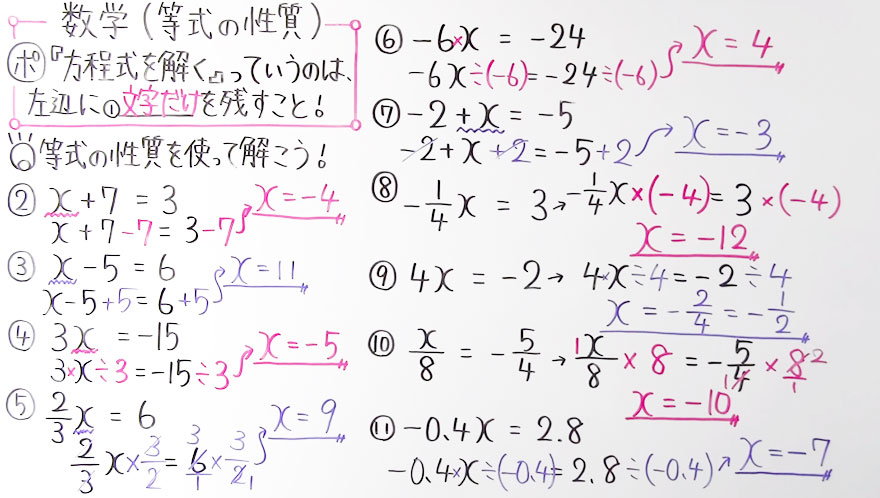 数学(等式の性質)
ポ『方程式を解く』っていうのは、
左辺に①文字だけを残すこと!
等式の性質を使って解こう!
② x+7=3
x+7-7=3-7 x=-4
③ x-5=6
x-5+5=6+5 x=11
④ 3x=-15
3×x÷3=-15÷3 x=-5
⑤ 2/3x=6
2/3x×3/2=6×3/2 x=9
3 1 1
⑥ -6×x=-24
-6x÷(-6)=-24÷(-6) x=4
⑦ -2+x=-5
-2+x+2=-5+2 x=-3
⑧ -1/4x=3→-1/4x×(-4)=3×(-4)
x=-12
⑨ 4x=-2→4×x÷4=-2÷4
x=-2/4=-1/2
⑩ x/8=-5/4→1x/8×8=-5/4×8
1 2 1
x=-10
⑪ -0.4x=2.8
-0.4×x÷(-0.4)=2.8÷(-0.4) x=-7